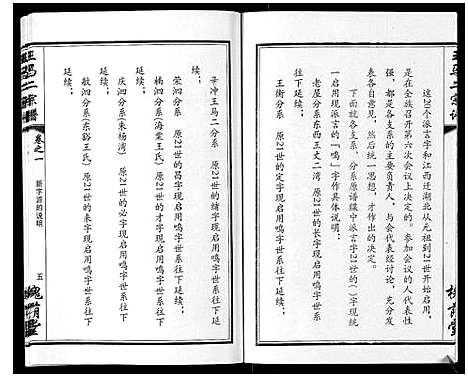 这20个派言字和江西迁湖北从元祖到21世开始启用，
是在全族召开第六次会议上决定的。参加会议的人代表性
强，都是各支系的主要负责人，经与会代表讨论，充分发
表各自意见，然后统一思想，才作出的决定。
下面就各支系、分系原谱续中派言字21世的（一）字现统
一启用现派言的『鸣』字作具体说明：
老屋分系东西王丈二湾 原21世的长字现启用鸣字世系往下
延续；
王衡分系 原21世的 字现启用鸣字世系往下
延续；
辛冲王马二分系 原21世的绪字现启用鸣字世系往下
延续；
荣泗分系 原21世的昌字现启用鸣字世系往下延续；
梯泗分系（海棠王氏） 原21世的才字现启用鸣字世系往下
延续；
庆泗分系（朱杨湾） 原21世的必字现启用鸣字世系往下
延续；
敏泗分系（东谿王氏） 原21世的来字现启用鸣字世系往下
延续；
王马二宗谱
卷之一
新字派的说明
五
槐荫堂